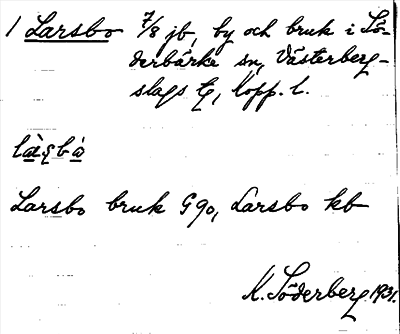 1 Larsbo 7/8 jb, by och bruk i Sö-
derbärke sn, Västerberg-
slags tg, Kopp. l.
Larsbo bruk G 90, Larsbo kb
K. Söderberg 1931.